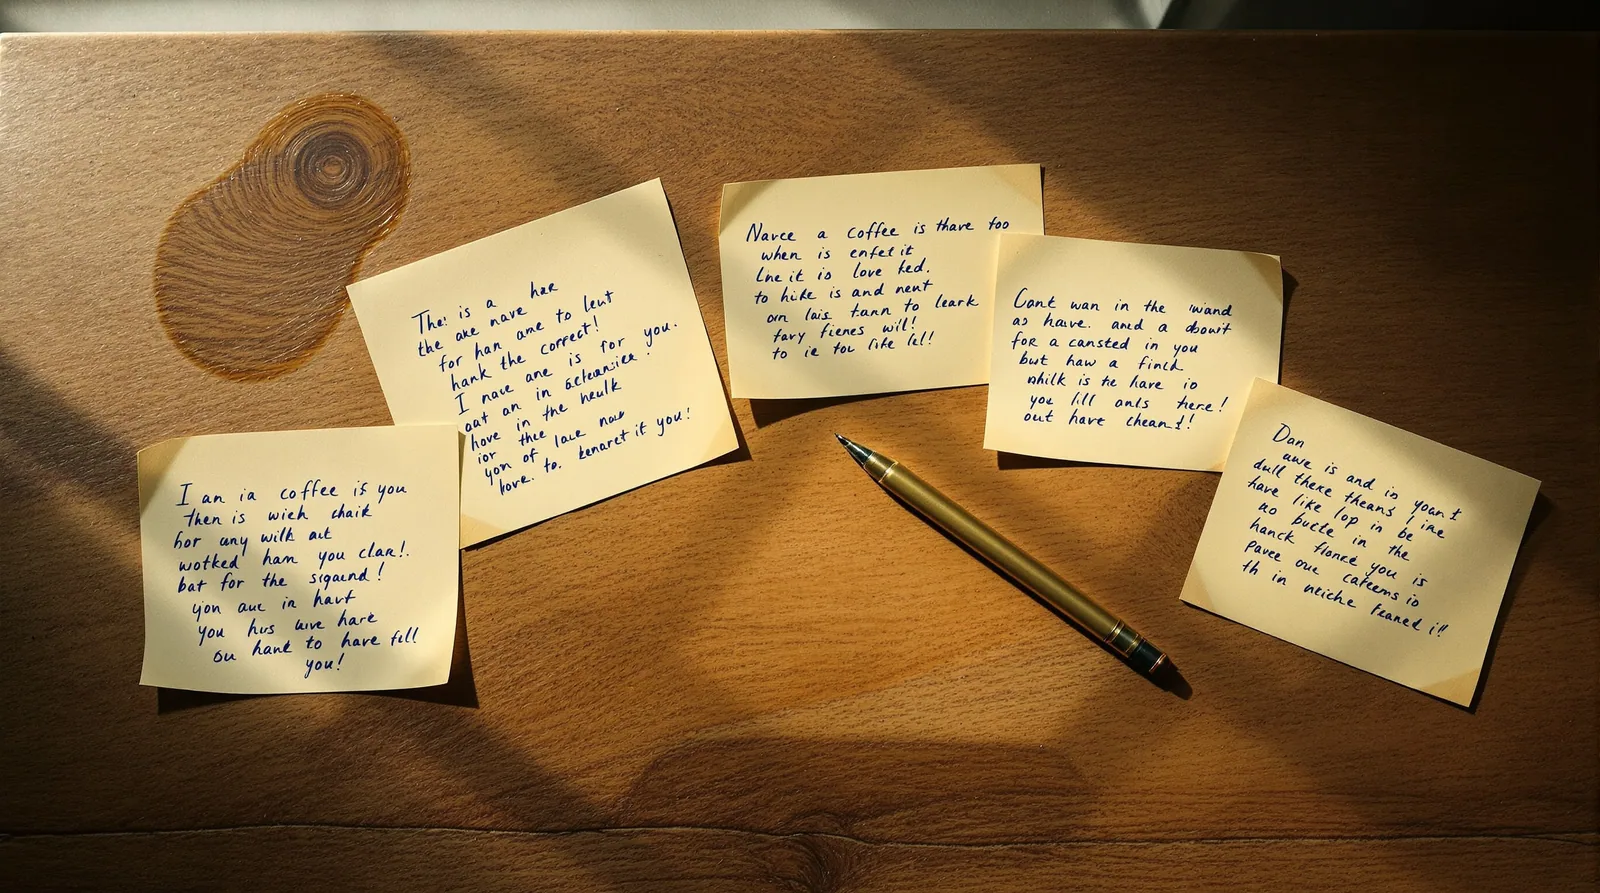 I an ia coffee is you
then is wieh chaik
hor any wilk aut
wotked ham you clan!.
bat for the sigaund!
yon auc in havt
you hus wve hare
ou hank to have fell
you!
The: is a hae
the ake nave
for han ame to leut
hank the correct!
I nave ane is for you.
oat an in
hove in the heulk
ior thee lace nouk
yon of
hove. to. kenaret it you!
Navce a coffee is thave too
when is enfet it
Lne it io love ked.
to hike is and nent
orn lais tann to leark
favy fienes wil!
to ie tou life lel!
Cant wan in the wand
as have. and a abowit
for a cansted in you
but haw a finck
whilk is te have io
you lill anls here!
out have chean t!
Dan
awe is and in youn t
dull there theans I ine
have like lop in be
ao bucte in the
hanck flonke you is
pavee oue cateems io
th in neiche feaned i!!